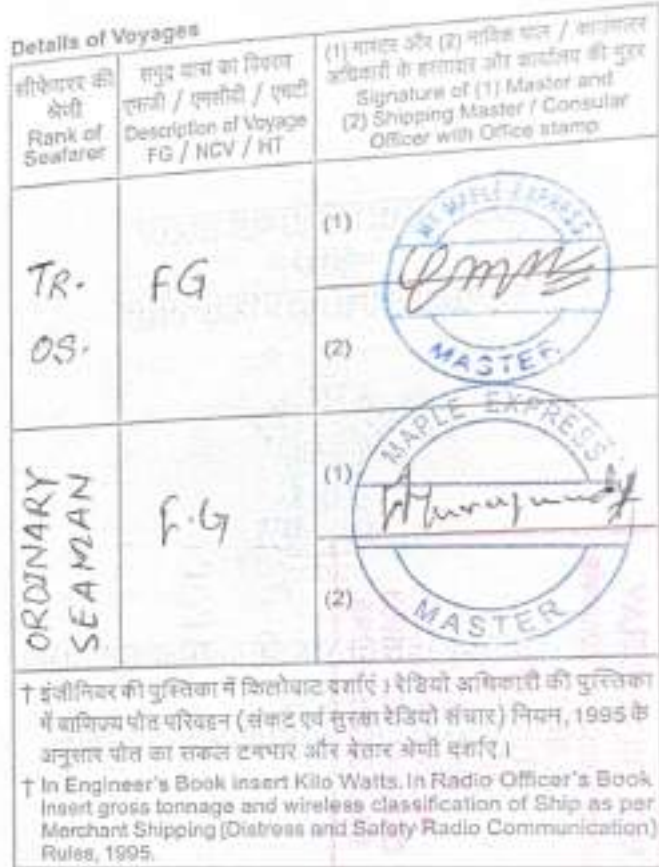 Details of Voyages
सीफेयरर की
श्रेणी
Rank of
Seafarer
समुद्र यात्रा का विवरण
एफजी / एनसीवी / एचटी
Description of Voyage
FG / NCV / HT
(1) मास्टर और (2) नाविक पाल / काउंसलर
अधिकारी के हस्ताक्षर और कार्यालय की मुहर
Signature of (1) Master and
(2) Shipping Master / Consular
Officer with Office stamp
TR.
OS.
FG
(1)
(2)
MT MAPLE EXPRESS
MASTER
ORDINARY
SEAMAN
F.G
(1)
(2)
MAPLE EXPRESS
MASTER
† इंजीनियर की पुस्तिका में किलोवाट दर्शाएं । रेडियो अधिकारी की पुस्तिका
में वाणिज्य पोत परिवहन (संकट एवं सुरक्षा रेडियो संचार) नियम, 1995 के
अनुसार पोत का सकल टनभार और बेतार श्रेणी दर्शाए ।
† In Engineer's Book insert Kilo Watts. In Radio Officer's Book
Insert gross tonnage and wireless classification of Ship as per
Merchant Shipping (Distress and Safety Radio Communication)
Rules, 1995.